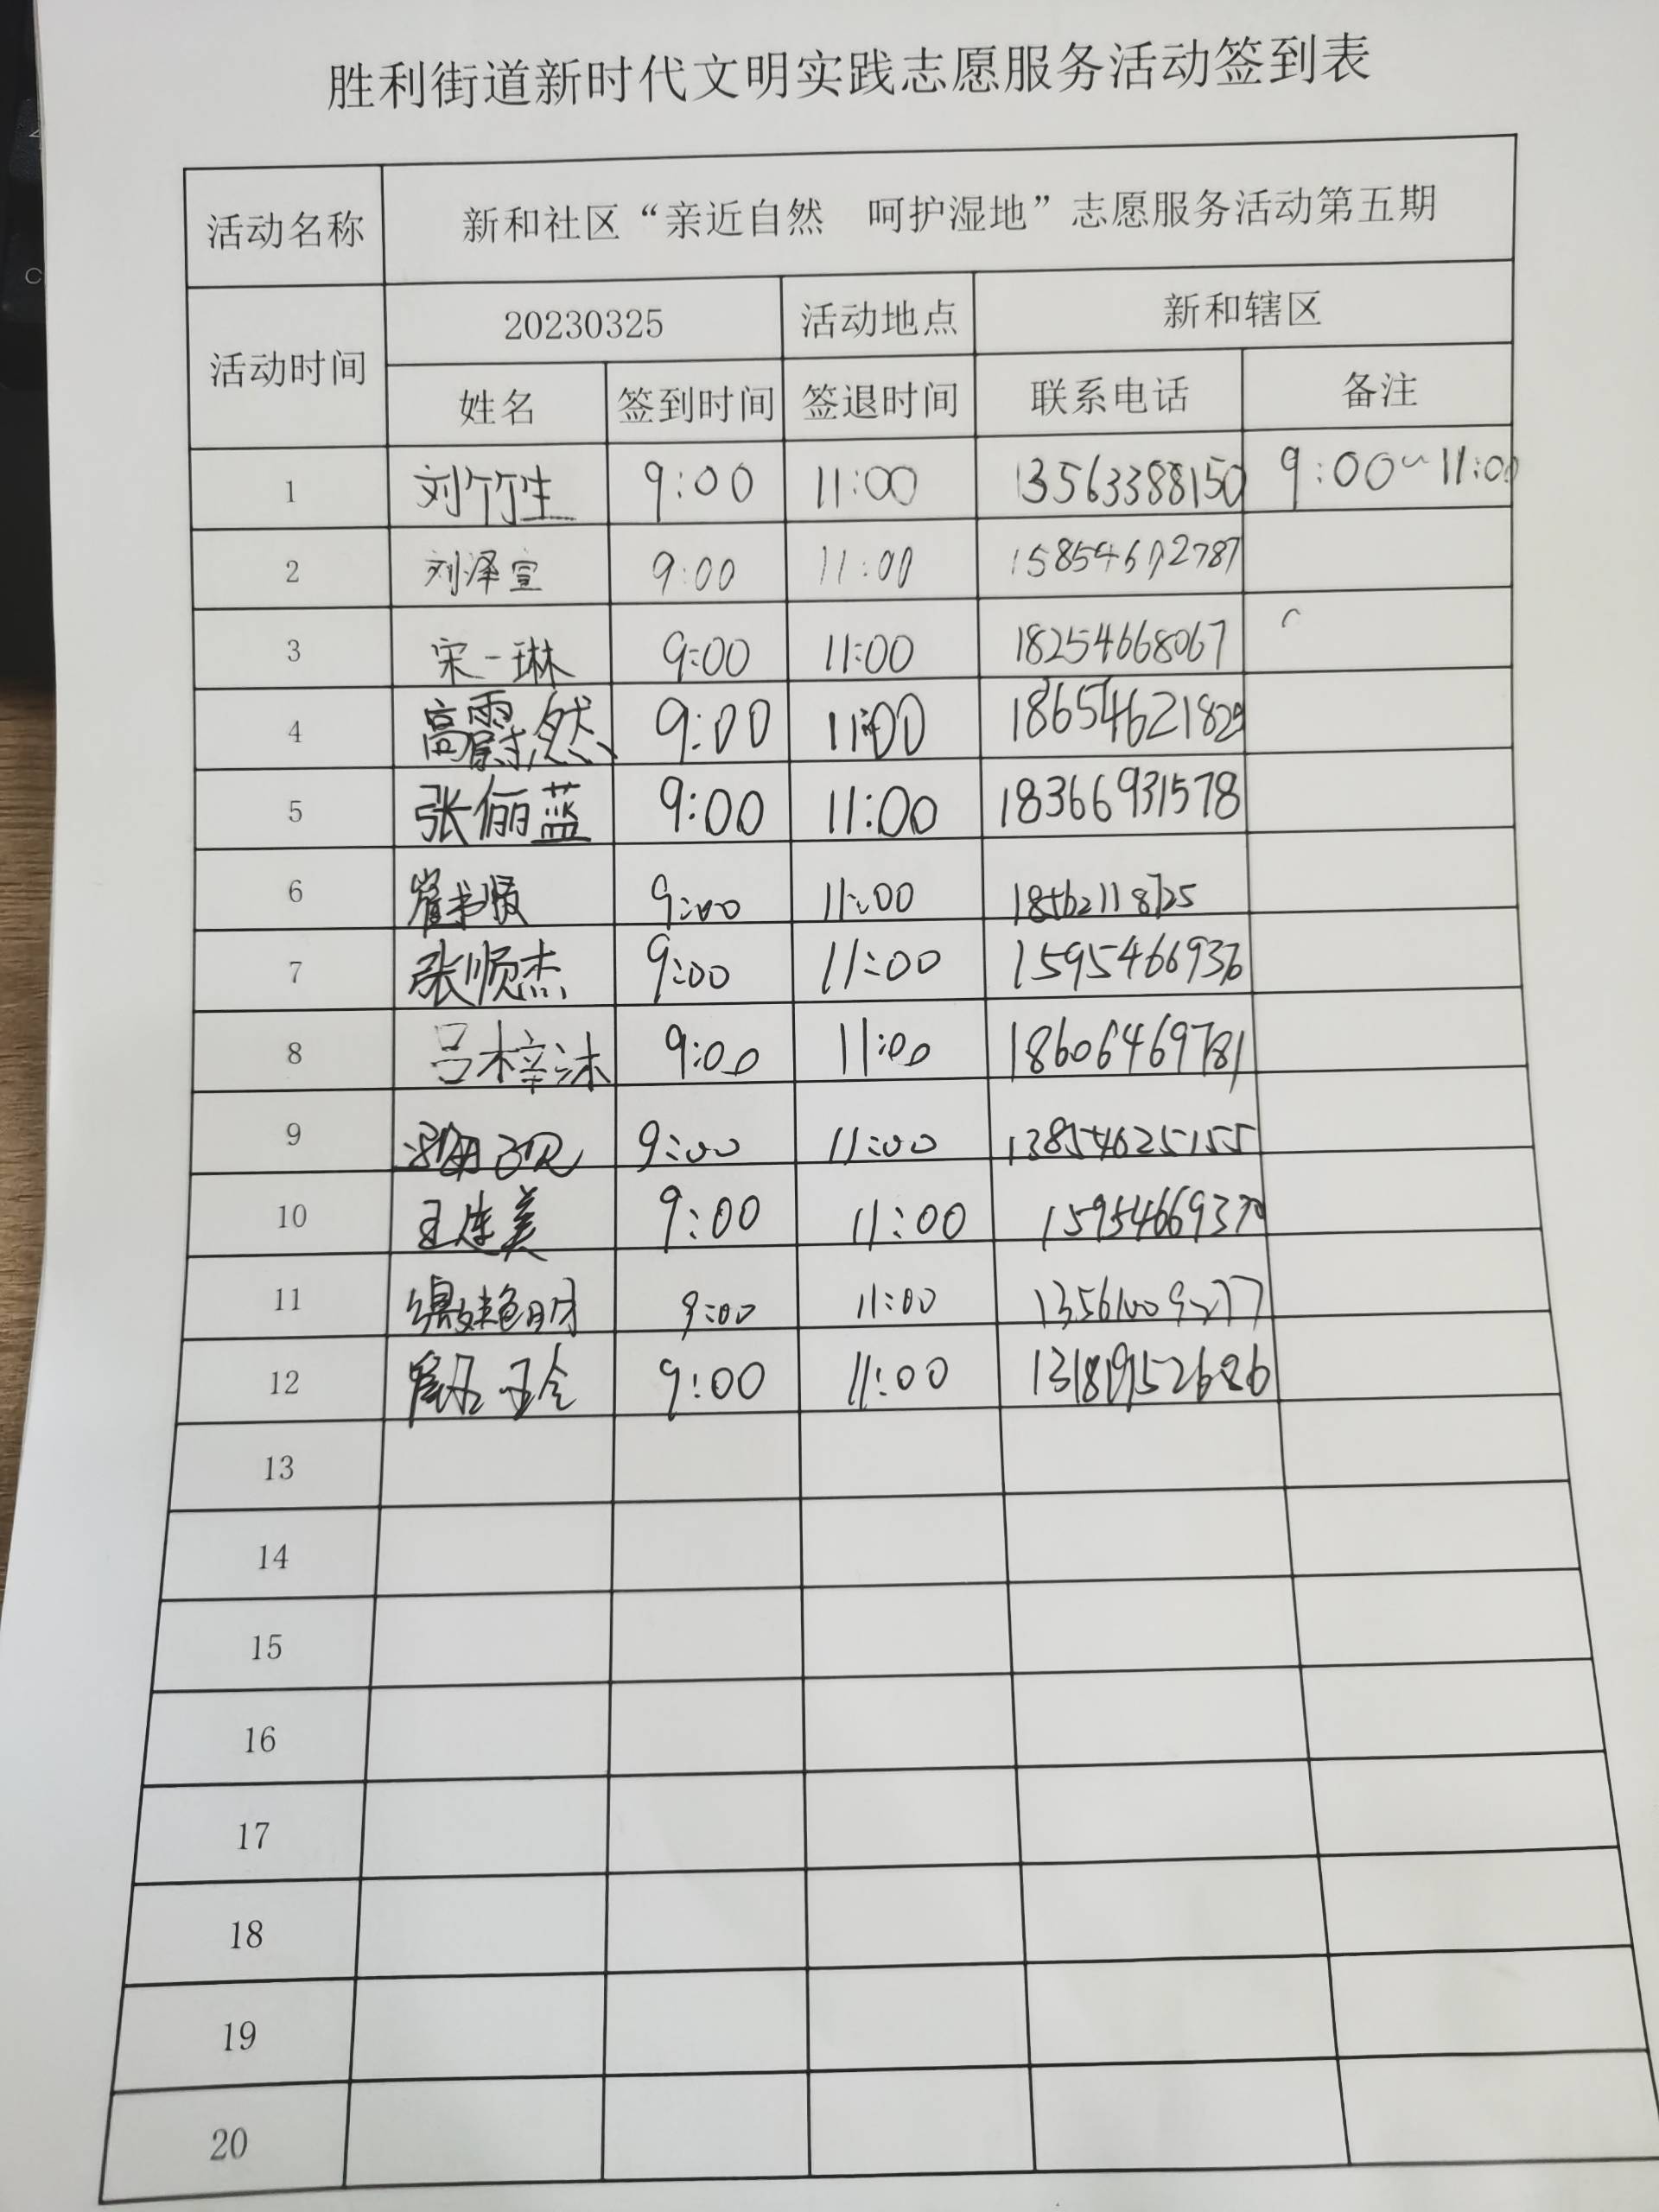 胜利街道新时代文明实践志愿服务活动签到表
活动名称 新和社区“亲近自然 呵护湿地”志愿服务活动第五期
活动时间 20230325 活动地点 新和辖区
姓名 签到时间 签退时间 联系电话 备注
1 刘竹生 9:00 11:00 13563388150 9:00~11:00
2 刘泽宣 9:00 11:00
3 宋一琳 9:00 11:00 18254668067
4 高霨然 9:00 11:00
5 张俪蓝 9:00 11:00 18366931578
6 9:00 11:00
7 张顺杰 9:00 11:00
8 吕梓沐 9:00 11:00 18606469781
9 9:00 11:00 13854625155
10 王连美 9:00 11:00
11 9:00 11:00
12 9:00 11:00
13
14
15
16
17
18
19
20